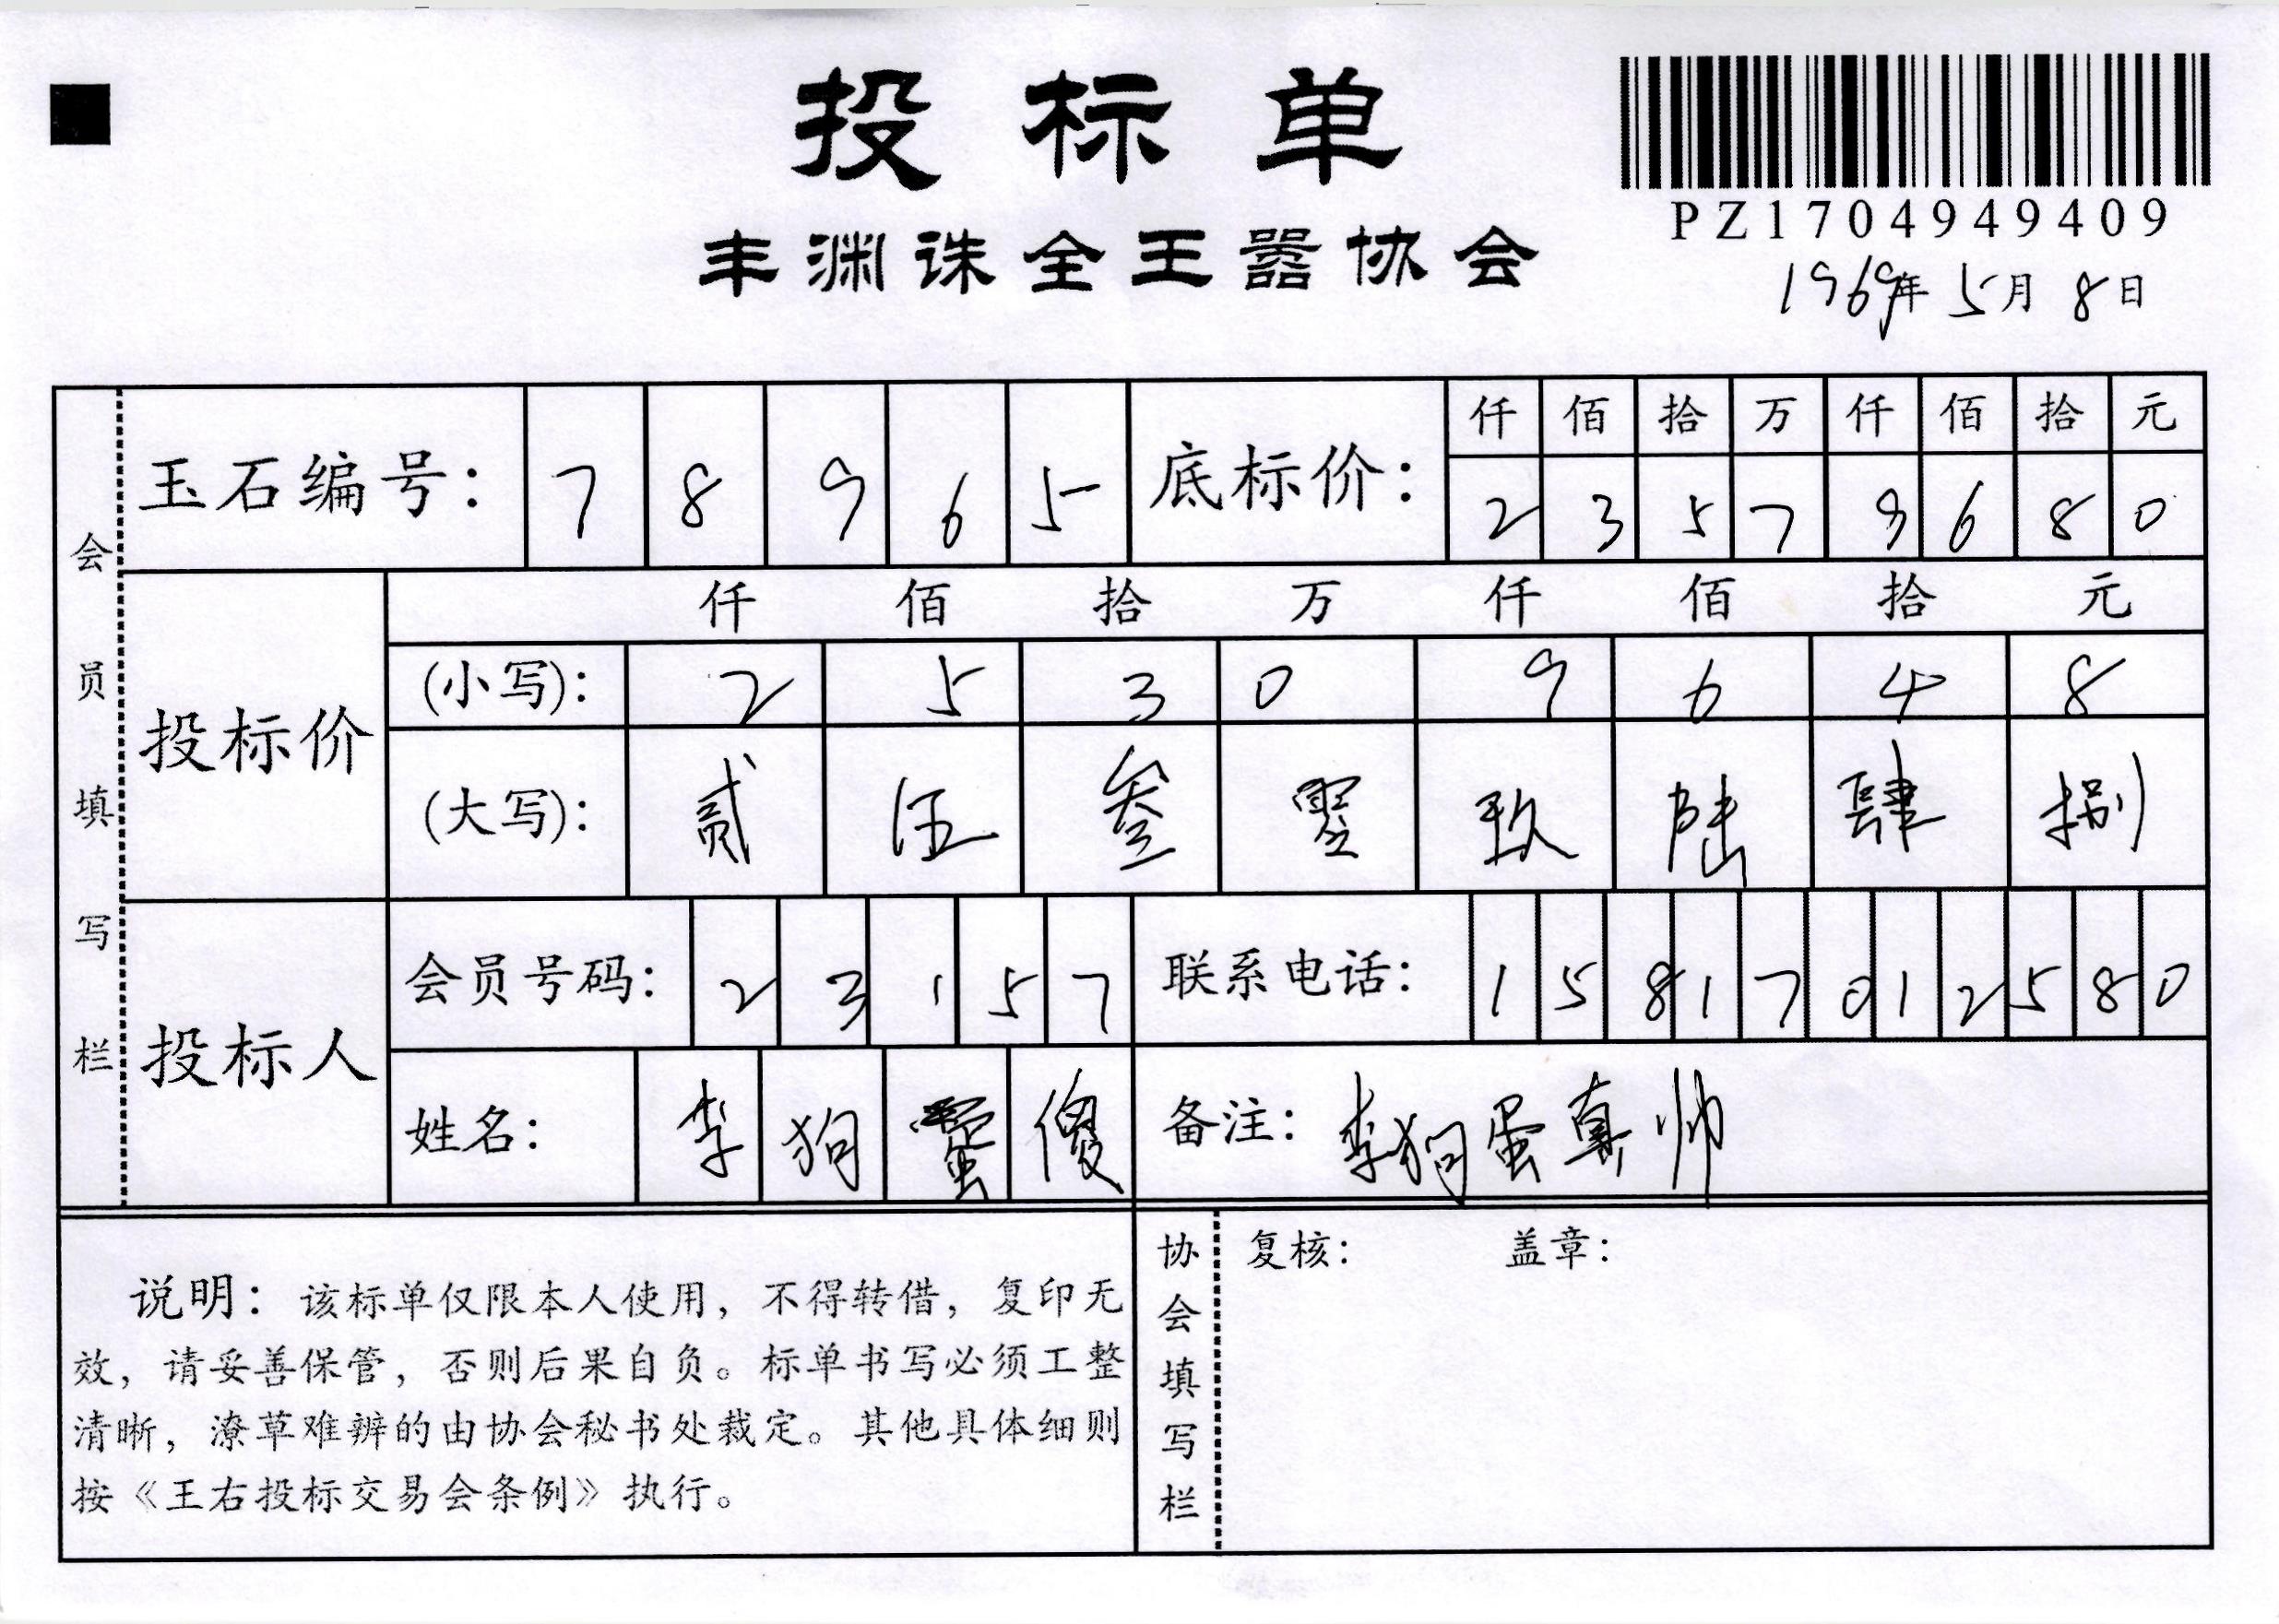 投标单
PZ1704949409
丰渊诛全王嚣协会
1969年5月8日
会员填写栏
玉石编号: 7 8 9 6 5
底标价: 仟 佰 拾 万 仟 佰 拾 元
2 3 5 7 9 6 8 0
投标价
仟 佰 拾 万 仟 佰 拾 元
(小写): 2 5 3 0 9 6 4 8
(大写): 贰 伍 叁 零 玖 陆 肆 捌
投标人
会员号码: 2 3 1 5 7
联系电话: 1 5 8 1 7 0 1 2 5 8 0
姓名: 李 狗 蛋 傻
备注: 李狗蛋真帅
说明: 该标单仅限本人使用，不得转借，复印无
效，请妥善保管，否则后果自负。标单书写必须工整
清晰，潦草难辨的由协会秘书处裁定。其他具体细则
按《王右投标交易会条例》执行。
协会填写栏
复核: 盖章: